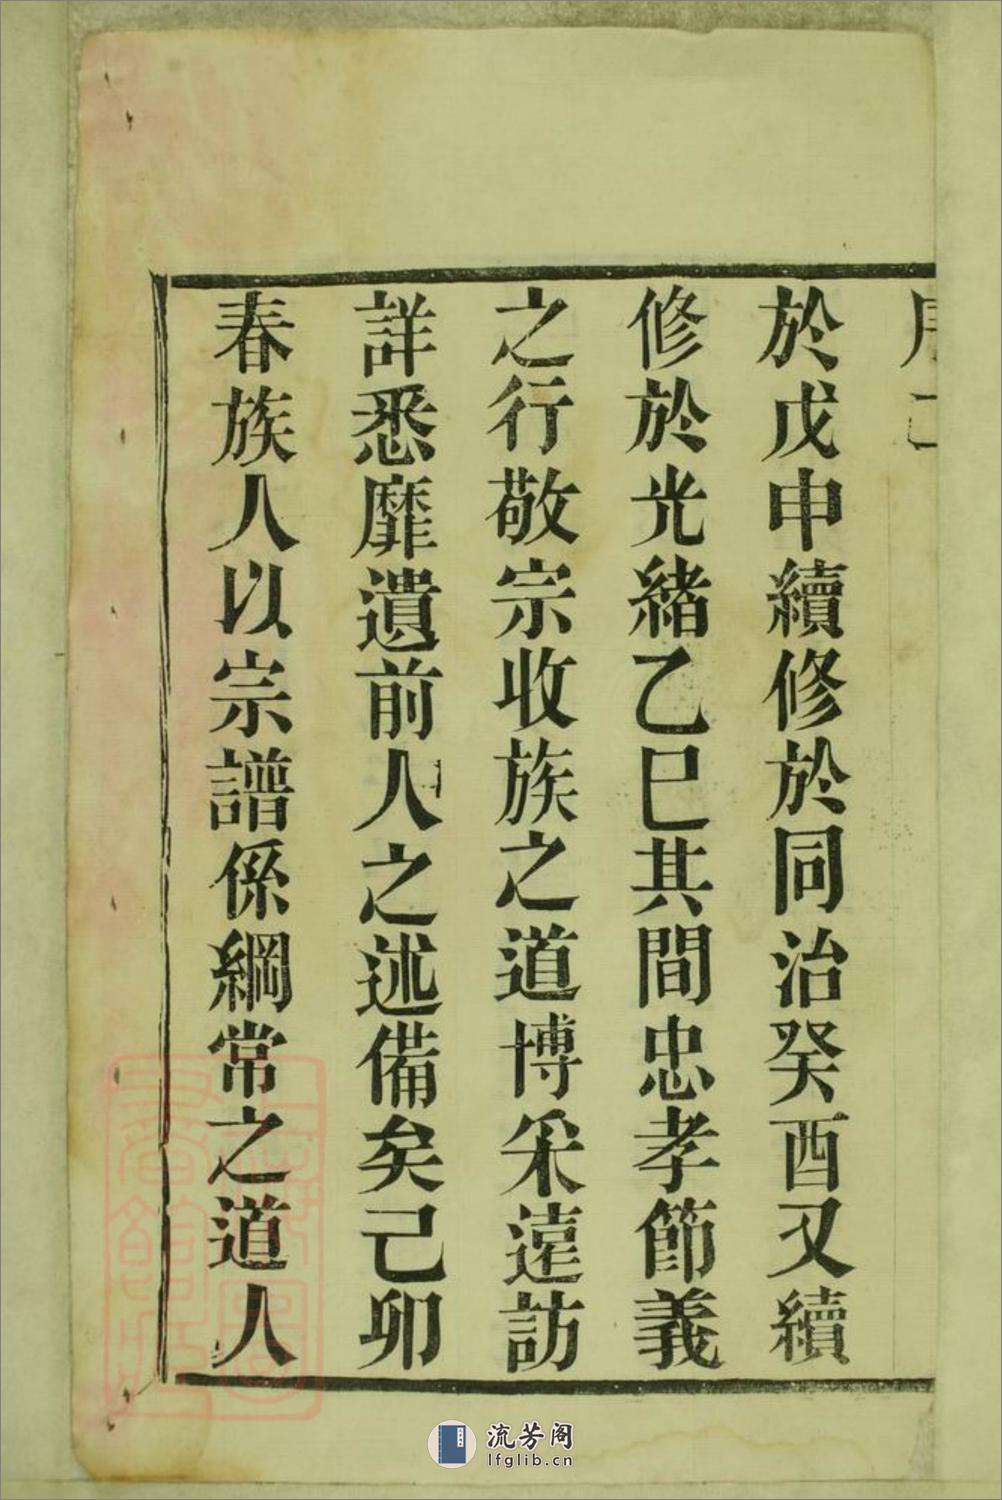 於戊申續修於同治癸酉又續
修於光緒乙巳其間忠孝節義
之行敬宗收族之道博采遠訪
詳悉靡遺前人之述備矣己卯
春族人以宗譜係綱常之道人
流芳阁
lfglib.cn